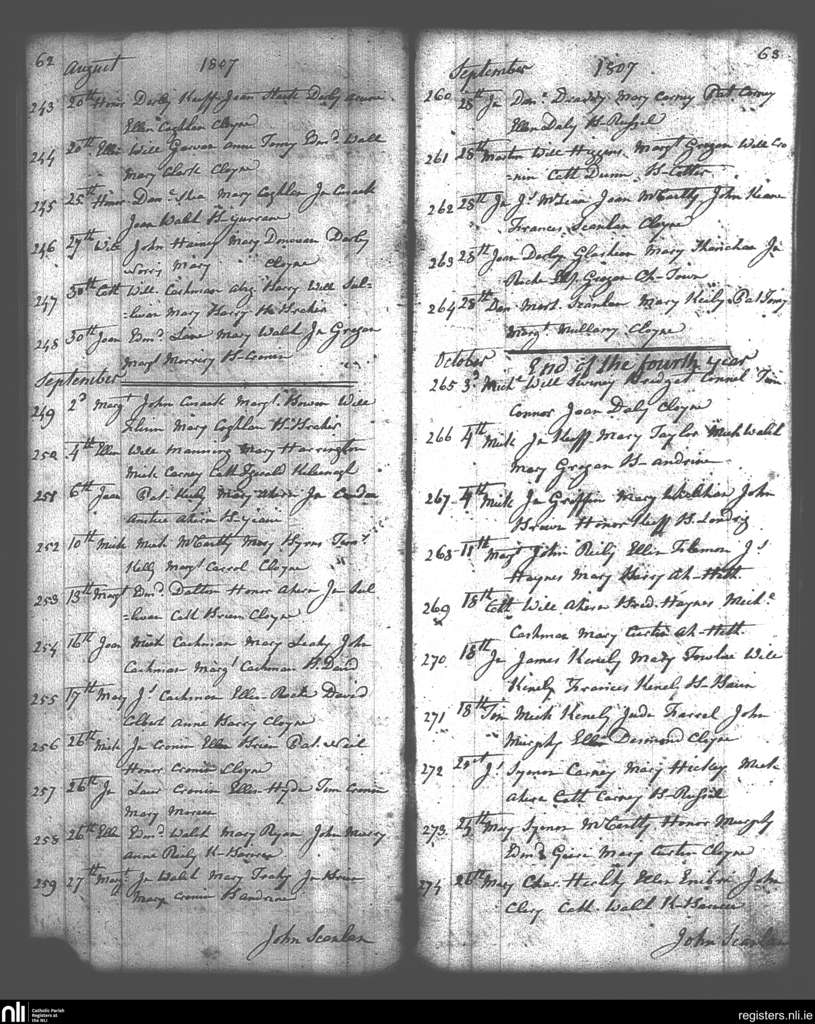 62 August 1807
243 20th Honor Darby Keeff Joan
Ellen Coghlan Cloyne
244 20th Ellen Will Garvan Anne Torry Edmd Walsh
Mary Clark Cloyne
245 25th Honor Danl Shea Mary Coghlan Jn Cusack
Joan Walsh B-Gurrane
246 27th Will John Mary Donovan Darby
Mary Cloyne
247 30th Cath Will Cashman Abig Harry Will Sul-
-livan Mary Harry
248 30th Joan Edmd Lane Mary Walsh Jn Gregan
Margt B-Cronin
September
249 2d Margt John Cusack Margt Bowen Will
Mary Coghlan
250 4th Ellen Will Manning Mary Harrington
Mich Carney Cath Kilvanagh
251 6th Joan Pat Kiely Mary Ahern Jn Condon
Ahern
252 10th Mich Mich McCarthy Mary Byrns
Kelly Margt Carrol Cloyne
253 13th Margt Edmd Dalton Honor Ahern Jn Sul
-livan Cath Brien Cloyne
254 16th Joan Mich Cashman Mary Leahy John
Cashman Margt Cashman B-David
255 17th Mary Js Cashman Ellen Roche David
Colbert Anne Barry Cloyne
256 26th Mich Jn Cronin Ellen Brien Pat Neil
Honor Cronin Cloyne
257 26th Jn Laur Cronin Ellen Hyde Tim Cronin
Mary
258 26th Ellen Edmd Walsh Mary Ryan John
Anne Reily K-
259 27th Margt Jn Walsh Mary Jn Brien
Mary Cronin B-andrine
John Scanlan
September 1807 63
260 28th Jn Danl Draddy Mary Carney Pat Carney
Ellen Daly B-Russel
261 28th Martin Will Higgins Margt Gregan Will Cro
-nin Cath Dunn B-Cotter
262 28th Jn Js McLean Joan McCarthy John Keane
Frances Scanlan Cloyne
263 28th Joan Darby Glasheen Mary Jn
Roche Gregan Ch-Town
264 28th Dan Mort Scanlan Mary Kiely Pat Torry
Margt Mullany Cloyne
End of the fourth year
October
265 3d Michl Will Bridget Connel Tim
Connor Joan Daly Cloyne
266 4th Mich Jn Keeff Mary Taylor Mich Walsh
Mary Gregan B-andrine
267 4th Mich Jn Griffin Mary John
Brown Honor Keeff B-
268 11th Margt John Reily Ellen Js
Haynes Mary Barry Ah-Heth
269 18th Cath Will Ahern Brid Haynes Michl
Cashman Mary Curtin Ah-Heth
270 18th Jn James Kenely Mary Fowlue Will
Kenely Frances Kenely B-
271 18th Tim Mich Kenely Jude Farrel John
Murphy Ellen Desmond Cloyne
272 Js Symon Carney Mary Hickey Mich
Ahern Cath Carney B-Russel
273 25th Mary Symon McCarthy Honor Murphy
Edmd Mary Curtin Cloyne
274 26th Mary Char Herlihy Ellen John
Clery Cath Walsh K-
John Scanlan
nli
Catholic Parish
Registers at
the NLI
registers.nli.ie